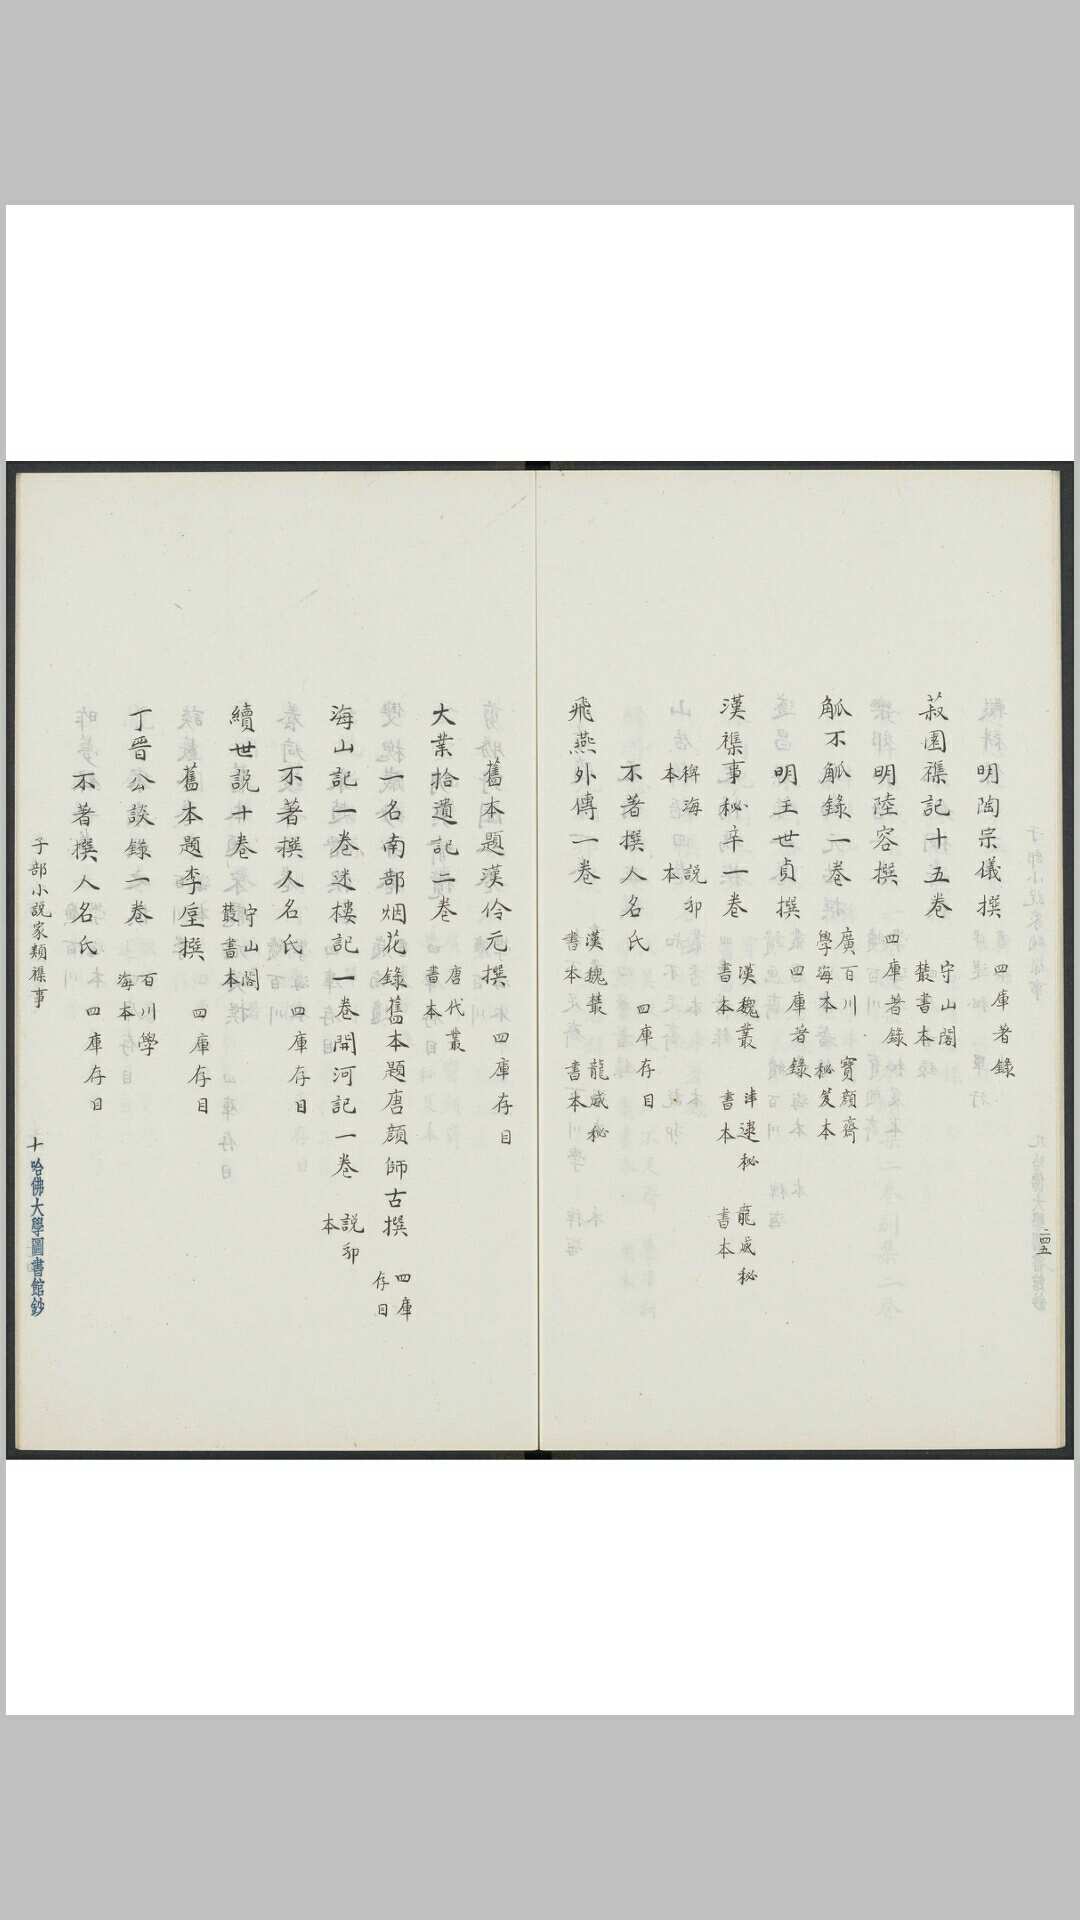 明陶宗儀撰 四庫著錄
菽園襍記十五卷 守山閣叢書本
明陸容撰 四庫著錄
觚不觚錄一卷 廣百川學海本 寶顏齋秘笈本
明王世貞撰 四庫著錄
漢襍事秘辛一卷 漢魏叢書本 津逮秘書本 龍威秘書本
稗海本 說郛本
不著撰人名氏 四庫存目
飛燕外傳一卷 漢魏叢書本 龍威秘書本
二四五
舊本題漢伶元撰 四庫存目
大業拾遺記二卷 唐代叢書本
一名南部烟花錄舊本題唐顏師古撰 四庫存目
海山記一卷迷樓記一卷開河記一卷 說郛本
不著撰人名氏 四庫存目
續世說十卷 守山閣叢書本
舊本題李垕撰 四庫存目
丁晉公談錄一卷 百川學海本
不著撰人名氏 四庫存目
子部小說家類襍事 十 哈佛大學圖書館鈔